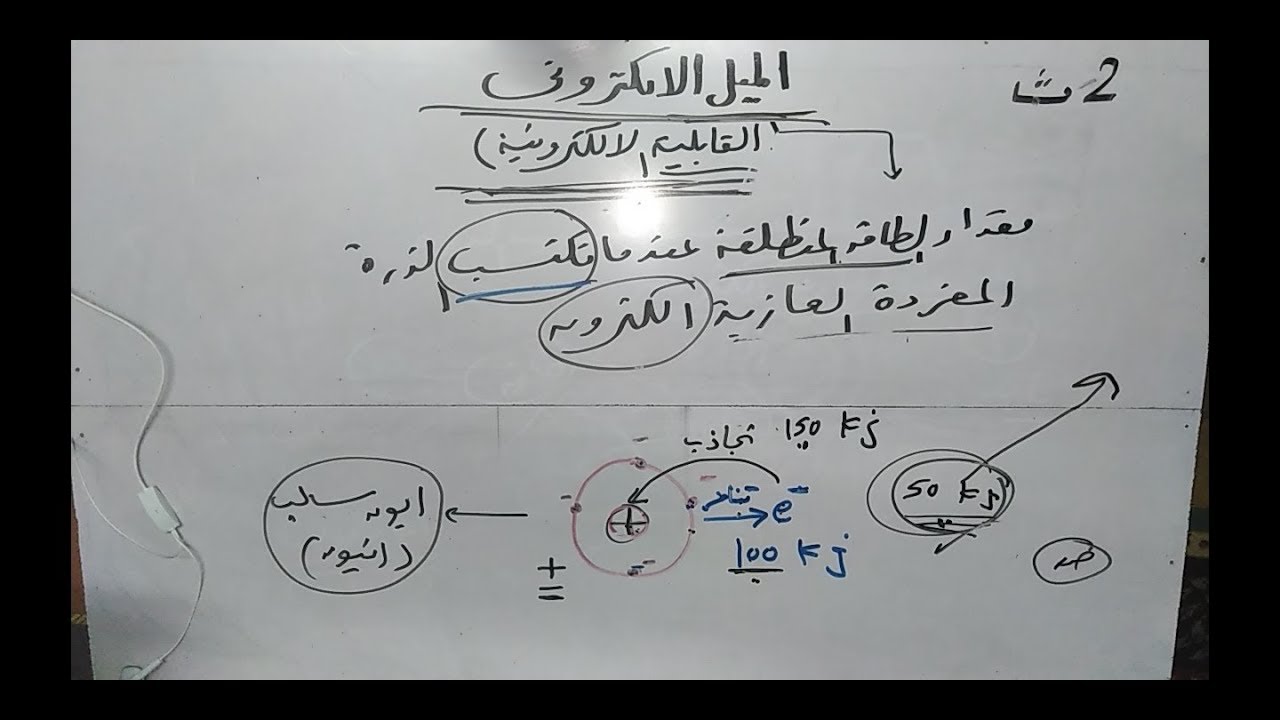 2 ثا
الميل الالكترونى
(القابلية الالكترونية)
مقدار الطاقة المنطلقة عندما تكتسب الذرة
المفردة الغازية الكترون
تجاذب 150 kj
50 kj
تنافر e−
100 kj
ايون سالب
(انيون)
+